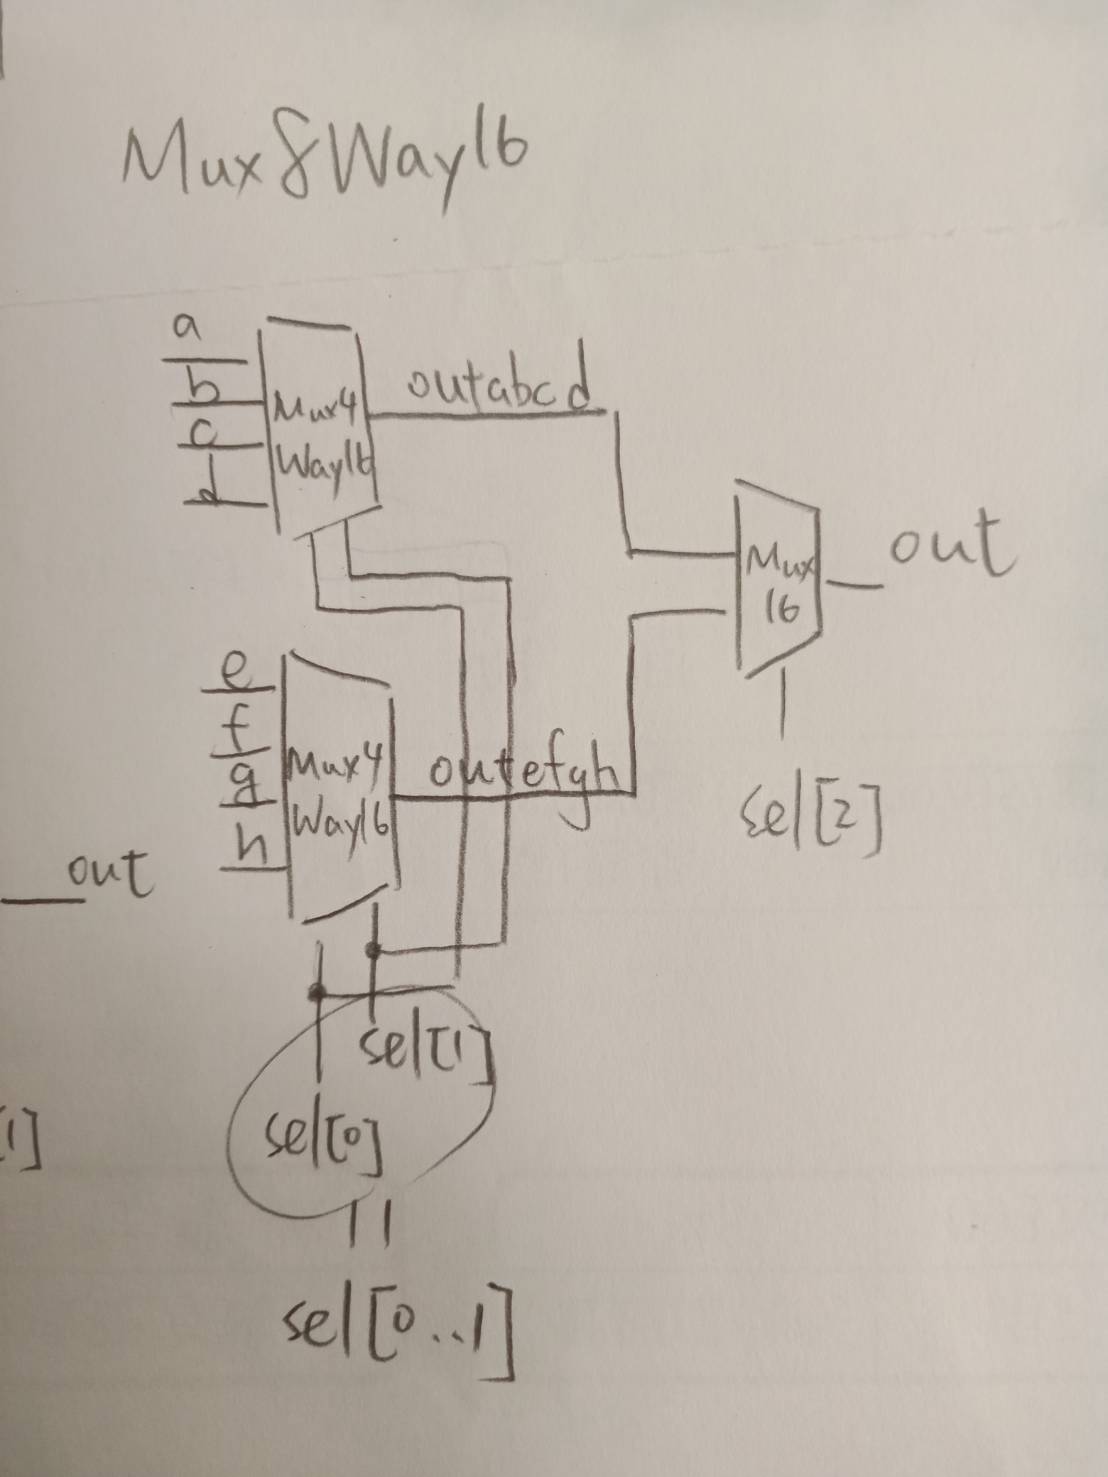 Mux8Way16
a
b
c
d
Mux4
Way16
outabcd
Mux
16
out
sel[2]
e
f
g
h
Mux4
Way16
outefgh
out
sel[1]
sel[0]
1]
sel[0..1]